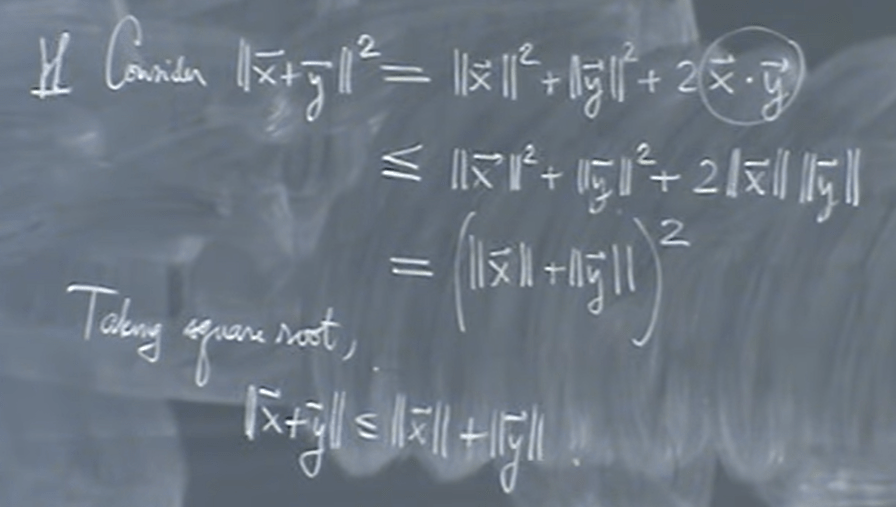 Pf Consider ‖x⃗+y⃗‖² = ‖x⃗‖² + ‖y⃗‖² + 2 x⃗ · y⃗
≤ ‖x⃗‖² + ‖y⃗‖² + 2‖x⃗‖ ‖y⃗‖
= (‖x⃗‖ + ‖y⃗‖)²
Taking square root,
‖x⃗+y⃗‖ ≤ ‖x⃗‖ + ‖y⃗‖.